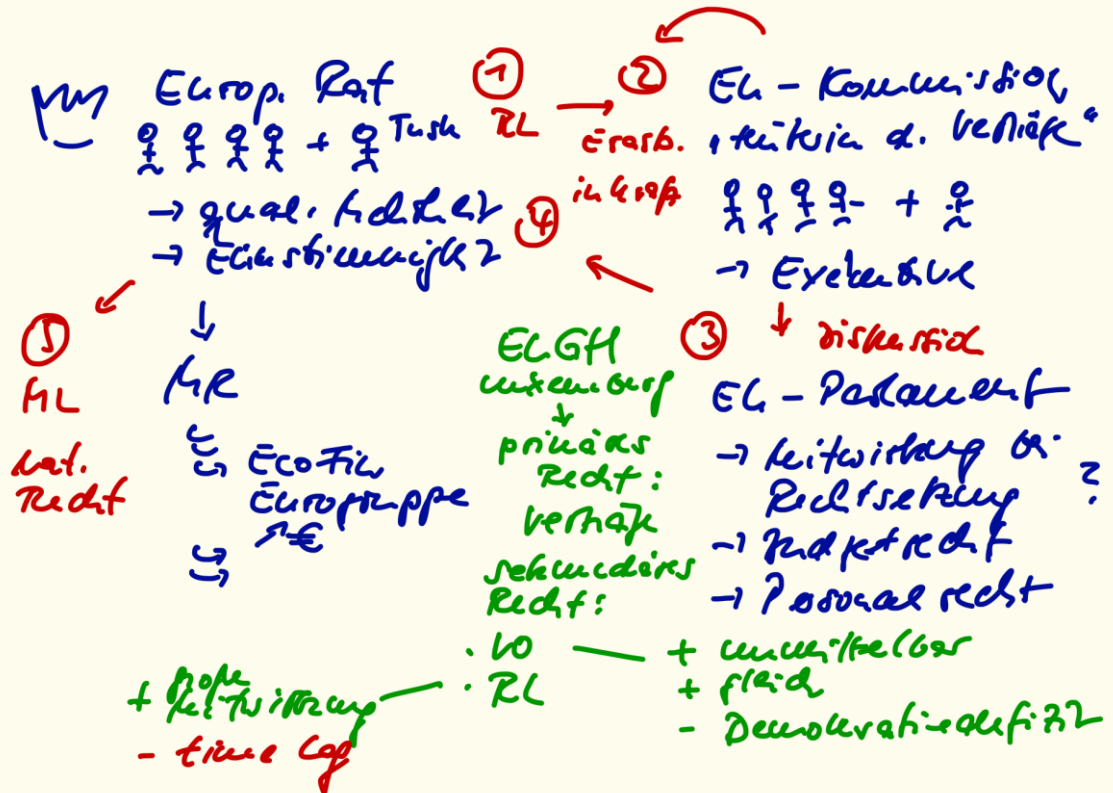 Europ. Rat
+ Tusk
→ qual. Mehrheit
→ Einstimmigkeit
↓
MR
→ EcoFin
Eurogruppe
↗ €
①
RL →
②
Erarb.
in Kraft
④
EU - Kommission
„Hüterin d. Verträge“
+
→ Exekutive
↓ Diskussion
③
EU - Parlament
→ Mitwirkung bei
Rechtsetzung ?
→ Budgetrecht
→ Personalrecht
⑤
ML
nat.
Recht
EuGH
Luxemburg
↓
primäres
Recht:
Verträge
sekundäres
Recht:
· VO — + unmittelbar
+ gleich
- Demokratiedefizit
· RL
+ große
Mitwirkung
- time lag